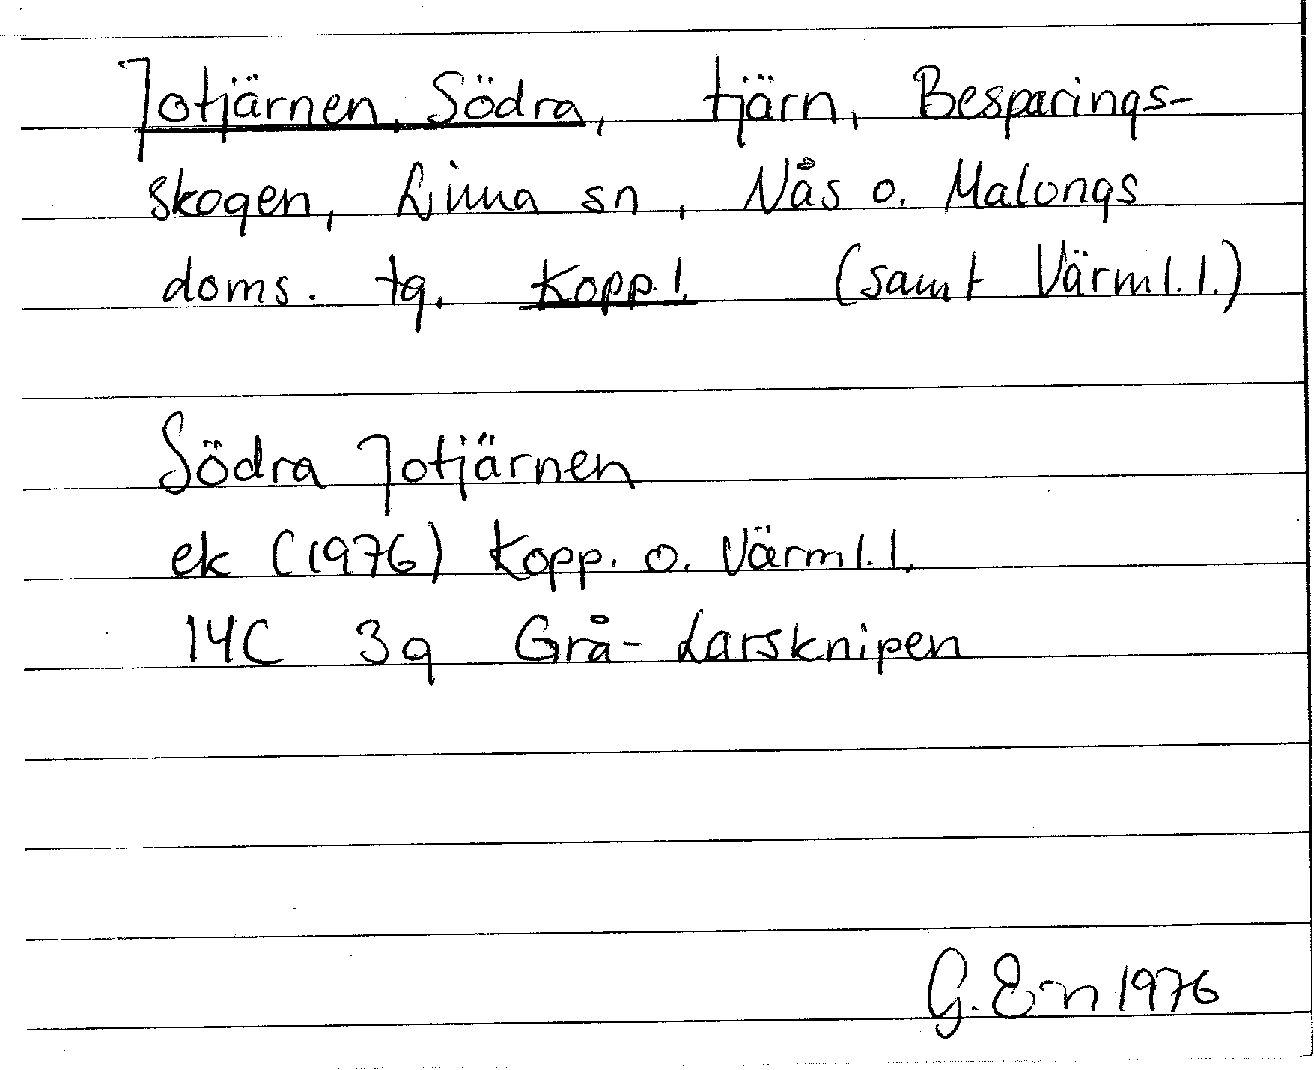 Jotjärnen, Södra, tjärn, Besparings-
skogen, Lima sn, Nås o. Malungs
doms. tg. Kopp.l. (samt Värml.l.)
Södra Jotjärnen
ek (1976) Kopp. o. Värml.l.
14C 3g Grå-Larsknipen
G. E-n 1976